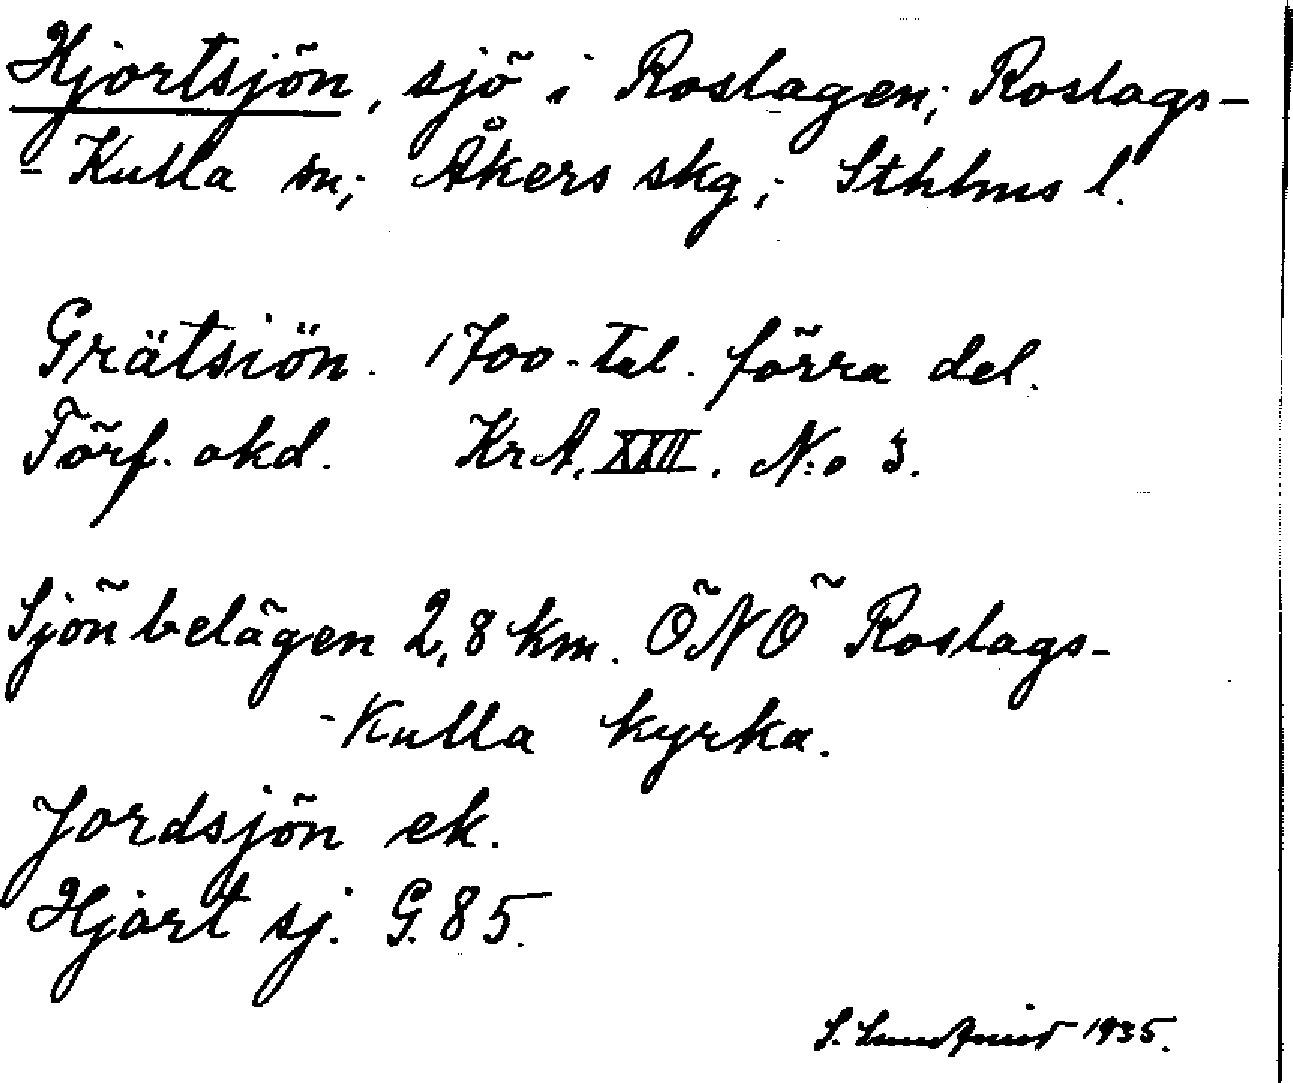 Hjortsjön, sjö i Roslagen; Roslags-
-Kulla sn; Åkers skg; Sthlms l.
Grätsiön. 1700-tal. förra del.
Förf. okd. KrA. XXII. N:o 3.
Sjön belägen 2,8 km. ÖNÖ Roslags-
-Kulla kyrka.
Jordsjön ek.
Hjort sj. G. 85.
S. 1935.